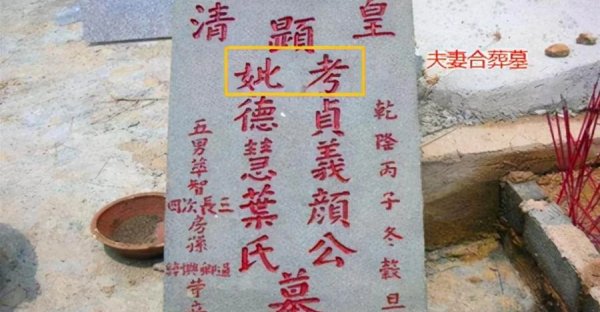 皇
清
顯
考貞義顏公
妣德慧葉氏
墓
乾隆丙子冬穀旦
五男萃智
三長次四
房孫
夫妻合葬墓